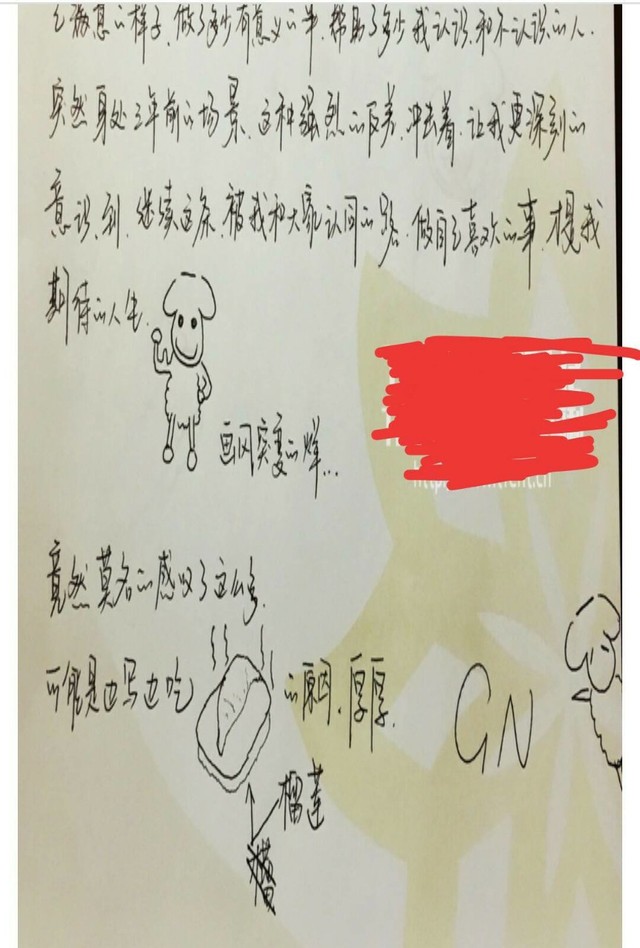 己激息的样子,做了多少有意义的事,帮助了多少我认识和不认识的人.
突然身处三年前的场景,这种强烈的反差,冲击着,让我更深刻的
意识到,继续这条,被我和大家认同的路,做自己喜欢的事,才是我
期待的人生.
画风突变的烊...
竟然莫名的感叹了这么多.
可能是边写边吃 的原因,厚厚.
GN
榴莲